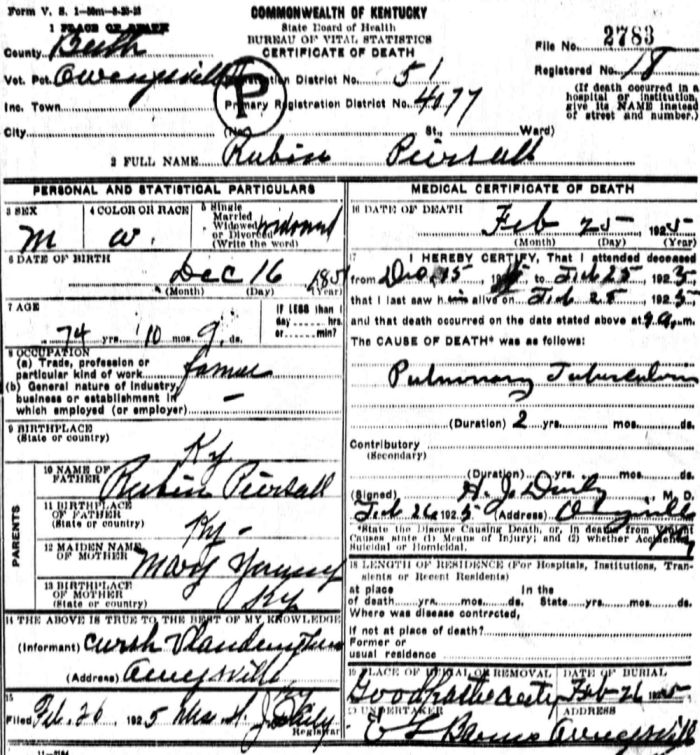 Form V. S. 1-50m-8-23-23
COMMONWEALTH OF KENTUCKY
State Board of Health
BUREAU OF VITAL STATISTICS
CERTIFICATE OF DEATH
1 PLACE OF DEATH
County Bath
File No. 2783
Vot. Pct. Owingsville
Registration District No. 51
Registered No. 18
Inc. Town
Primary Registration District No. 4077
P
(If death occurred in a hospital or institution, give its NAME instead of street and number.)
City (No. St., Ward)
2 FULL NAME Rubin Piersall
PERSONAL AND STATISTICAL PARTICULARS
3 SEX M
4 COLOR OR RACE W.
5 Single Married Widowed or Divorced (Write the word) widowed
6 DATE OF BIRTH
Dec 16 185
(Month) (Day) (Year)
7 AGE
74 yrs. 10 mos. 9 ds.
If LESS than 1 day hrs. or min?
8 OCCUPATION
(a) Trade, profession or particular kind of work farmer
(b) General nature of industry, business or establishment in which employed (or employer) -
9 BIRTHPLACE
(State or country) Ky
PARENTS
10 NAME OF FATHER Rubin Piersall
11 BIRTHPLACE OF FATHER (State or country) Ky-
12 MAIDEN NAME OF MOTHER Mary
13 BIRTHPLACE OF MOTHER (State or country) Ky
14 THE ABOVE IS TRUE TO THE BEST OF MY KNOWLEDGE
(Informant)
(Address)
15
Filed Feb. 26 1925 Mrs H. J. Daily
Registrar
MEDICAL CERTIFICATE OF DEATH
16 DATE OF DEATH
Feb 25 1925
(Month) (Day) (Year)
17 I HEREBY CERTIFY, That I attended deceased
from 15 192 to Feb 25, 192
that I last saw him alive on Feb 25 192
and that death occurred on the date stated above at m.
The CAUSE OF DEATH* was as follows:
Pulmonary Tuberculosis
(Duration) 2 yrs. mos. ds.
Contributory
(Secondary)
(Duration) yrs. mos. ds.
(Signed) H. J. Daily M. D.
Feb 26 192 (Address)
*State the Disease Causing Death, or, in deaths from Violent Causes state (1) Means of Injury; and (2) whether Accidental, Suicidal or Homicidal.
18 LENGTH OF RESIDENCE (For Hospitals, Institutions, Transients or Recent Residents)
at place of death yrs. mos. ds. In the State yrs. mos. ds.
Where was disease contracted,
if not at place of death?
Former or usual residence
19 PLACE OF BURIAL OR REMOVAL
DATE OF BURIAL
Feb-26 1925
20 UNDERTAKER
ADDRESS